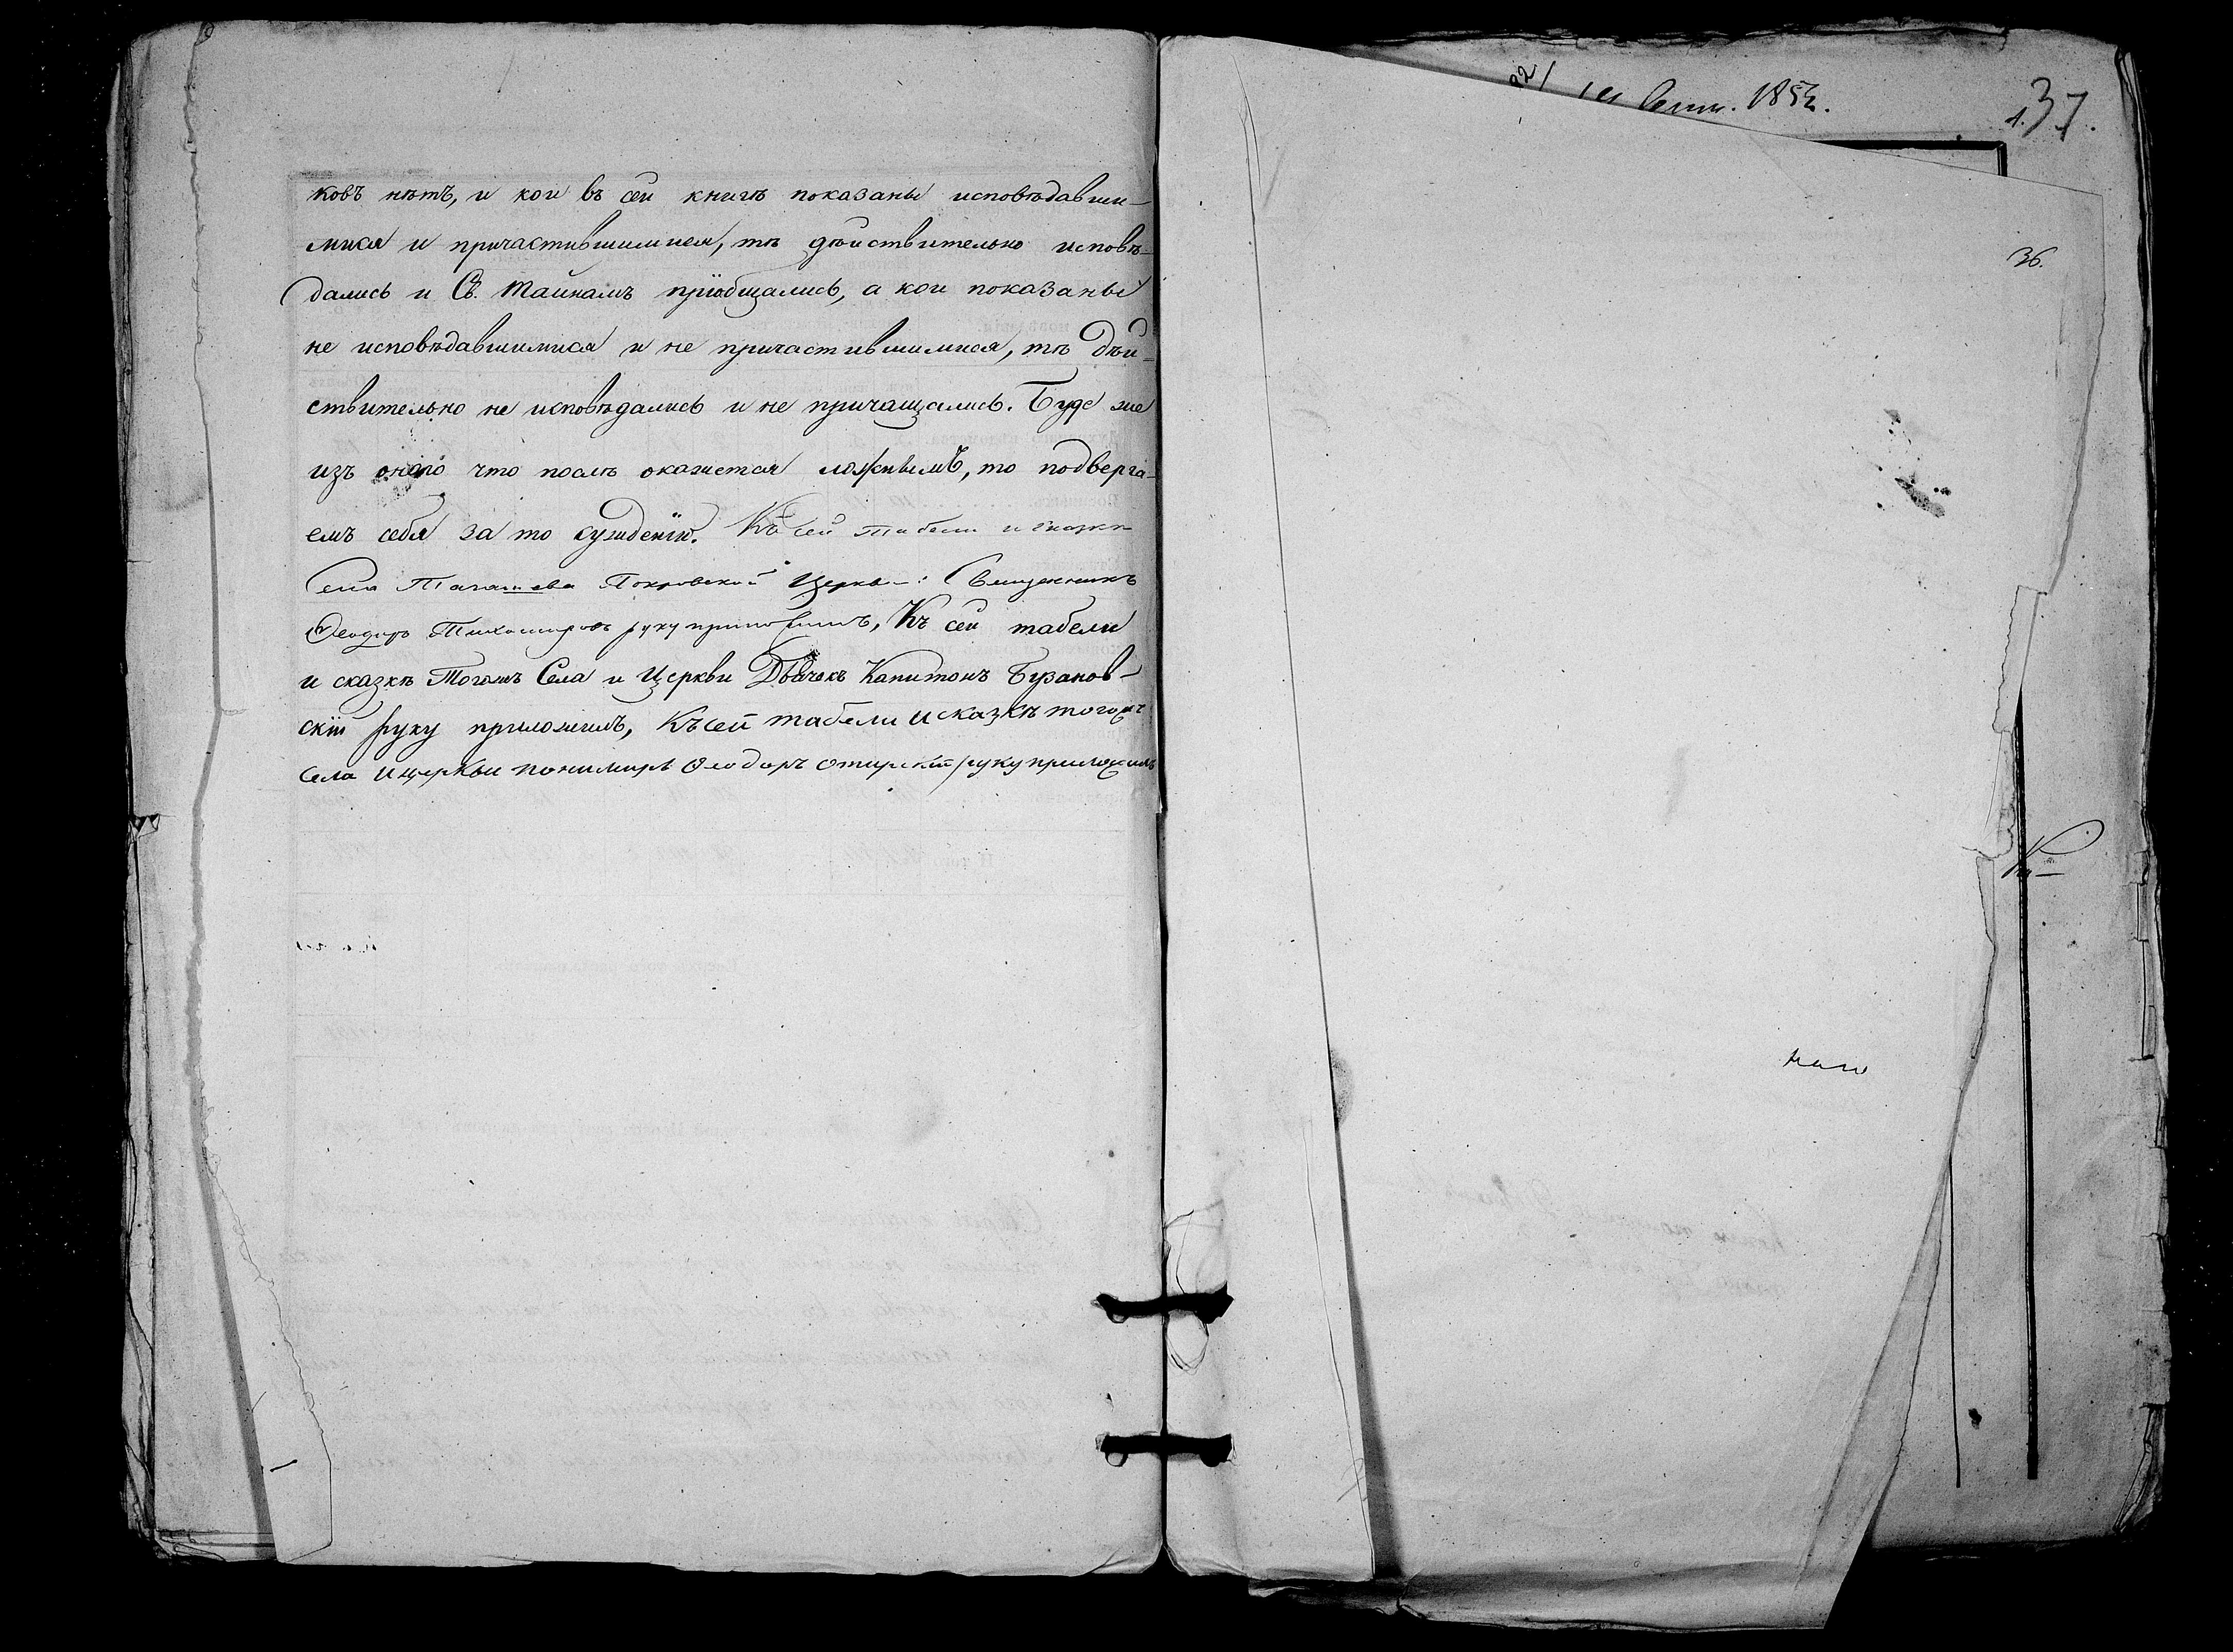 ковъ нѣтъ, и кои въ сей книгѣ показаны исповѣдавши-
мися и причастившимися, тѣ дѣйствительно исповѣ-
дались и Св. Тайнамъ пріобщались, а кои показаны
не исповѣдавшимися и не причастившимися, тѣ дѣй-
ствительно не исповѣдались и не причащались. Буде же
изъ онаго что послѣ окажется ложнымъ, то подверга-
емъ себя за то сужденію. Къ сей табели и сказкѣ
Села Покровской Церкви: Священникъ
Ѳеодоръ Тихомировъ руку приложилъ, Къ сей табели
и сказкѣ Тогожъ Села и Церкви Дьячекъ Капитонъ Бузанов-
скій руку приложилъ, Къ сей табели и сказкѣ тогожъ
Села и церкви пономарь Ѳеодоръ руку приложилъ
Сент. 1852.
137.
36.